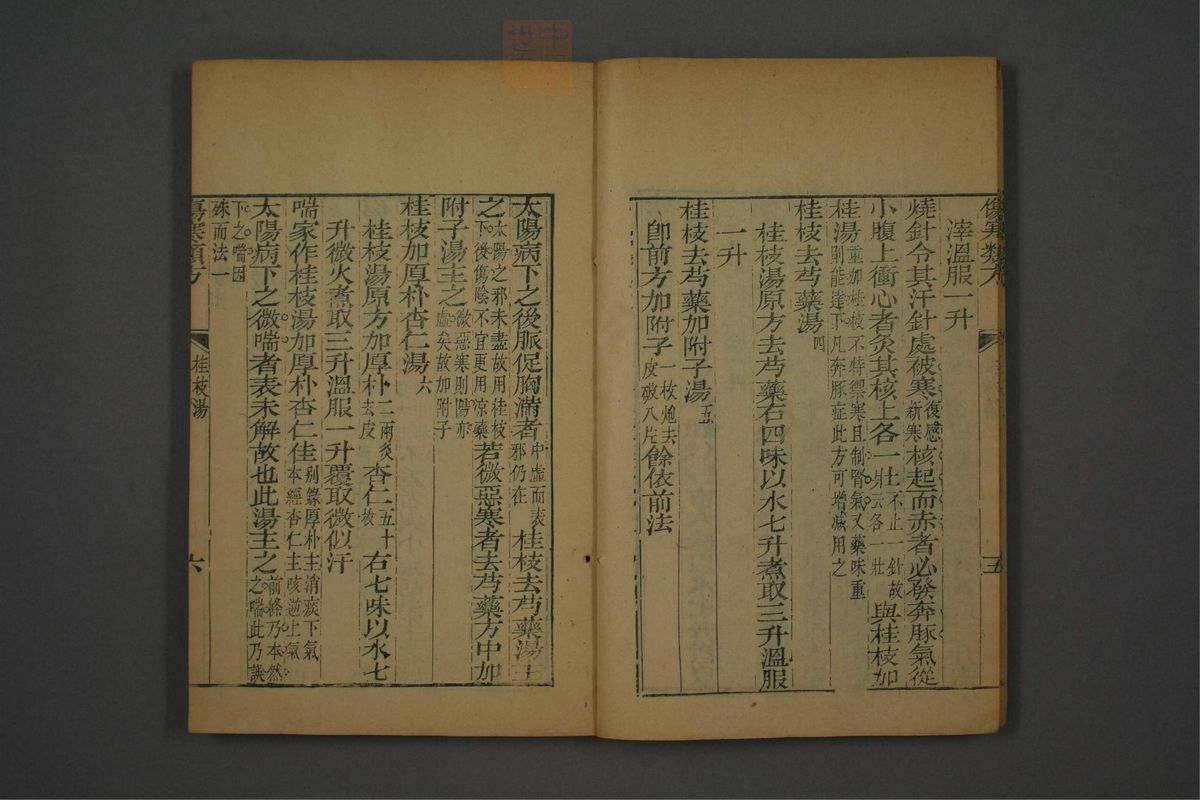 傷寒類方
五
滓溫服一升
燒針令其汗針處被寒復感新寒核起而赤者必發奔豚氣從
小腹上衝心者灸其核上各一壯不止一針故云各一壯與桂枝加
桂湯重加桂枝不特禦寒且制腎氣又藥味重則能達下凡奔豚症此方可增減用之
桂枝去芍藥湯四
桂枝湯原方去芍藥右四味以水七升煮取三升溫服
一升
桂枝去芍藥加附子湯五
卽前方加附子一枚炮去皮破八片餘依前法
太陽病下之後脈促胸滿者中虛而表邪仍在桂枝去芍藥湯主
之太陽之邪未盡故用桂枝下後傷陰不宜更用涼藥若微惡寒者去芍藥方中加
附子湯主之微惡寒則陽亦虛矣故加附子
桂枝加厚朴杏仁湯六
桂枝湯原方加厚朴二兩炙去皮杏仁五十枚右七味以水七
升微火煮取三升溫服一升覆取微似汗
喘家作桂枝湯加厚朴杏仁佳別錄厚朴主消痰下氣本經杏仁主咳逆上氣
太陽病下之微喘者表未解故也此湯主之前條乃本然之喘此乃誤
下之喘因
殊而法一
傷寒類方
桂枝湯
六